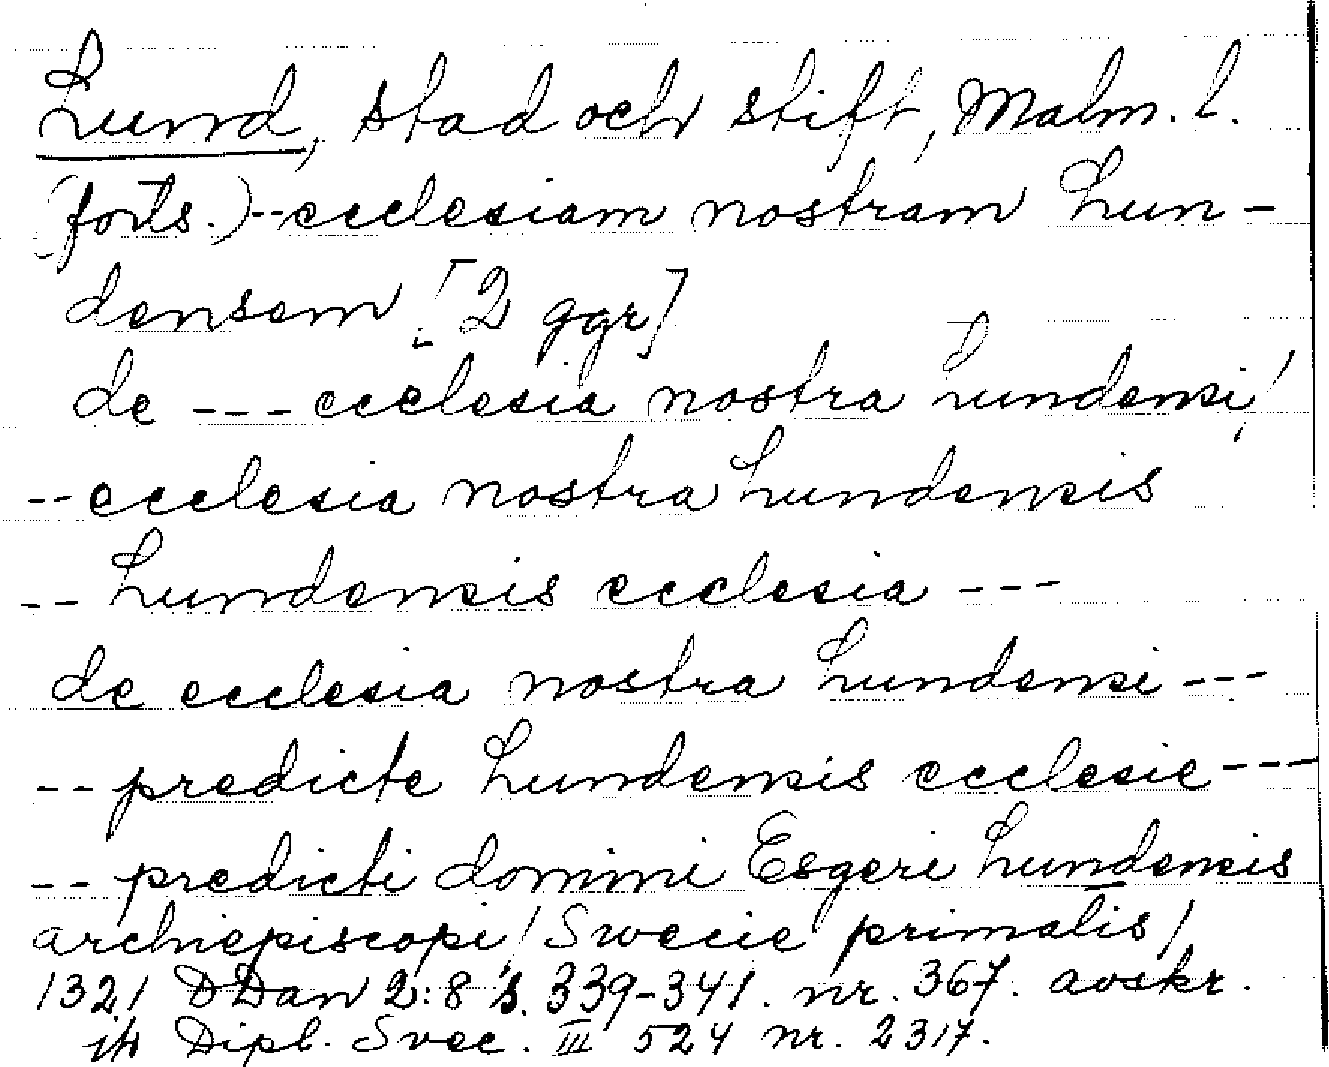 Lund, stad och stift, Malm. l.
(forts.) -- ecclesiam nostram Lun-
densem [2 ggr]
de --- ecclesia nostra Lundensi /
-- ecclesia nostra Lundensis
-- Lundensis ecclesia ---
de ecclesia nostra Lundensi ---
-- predicte Lundensis ecclesie ---
-- predicti domini Esgeri Lundensis
archiepiscopi / Swecie primatis /
1321 DDan 2:8 s. 339-341. nr. 367. avskr.
Dipl. Svec. III 524 nr. 2317.